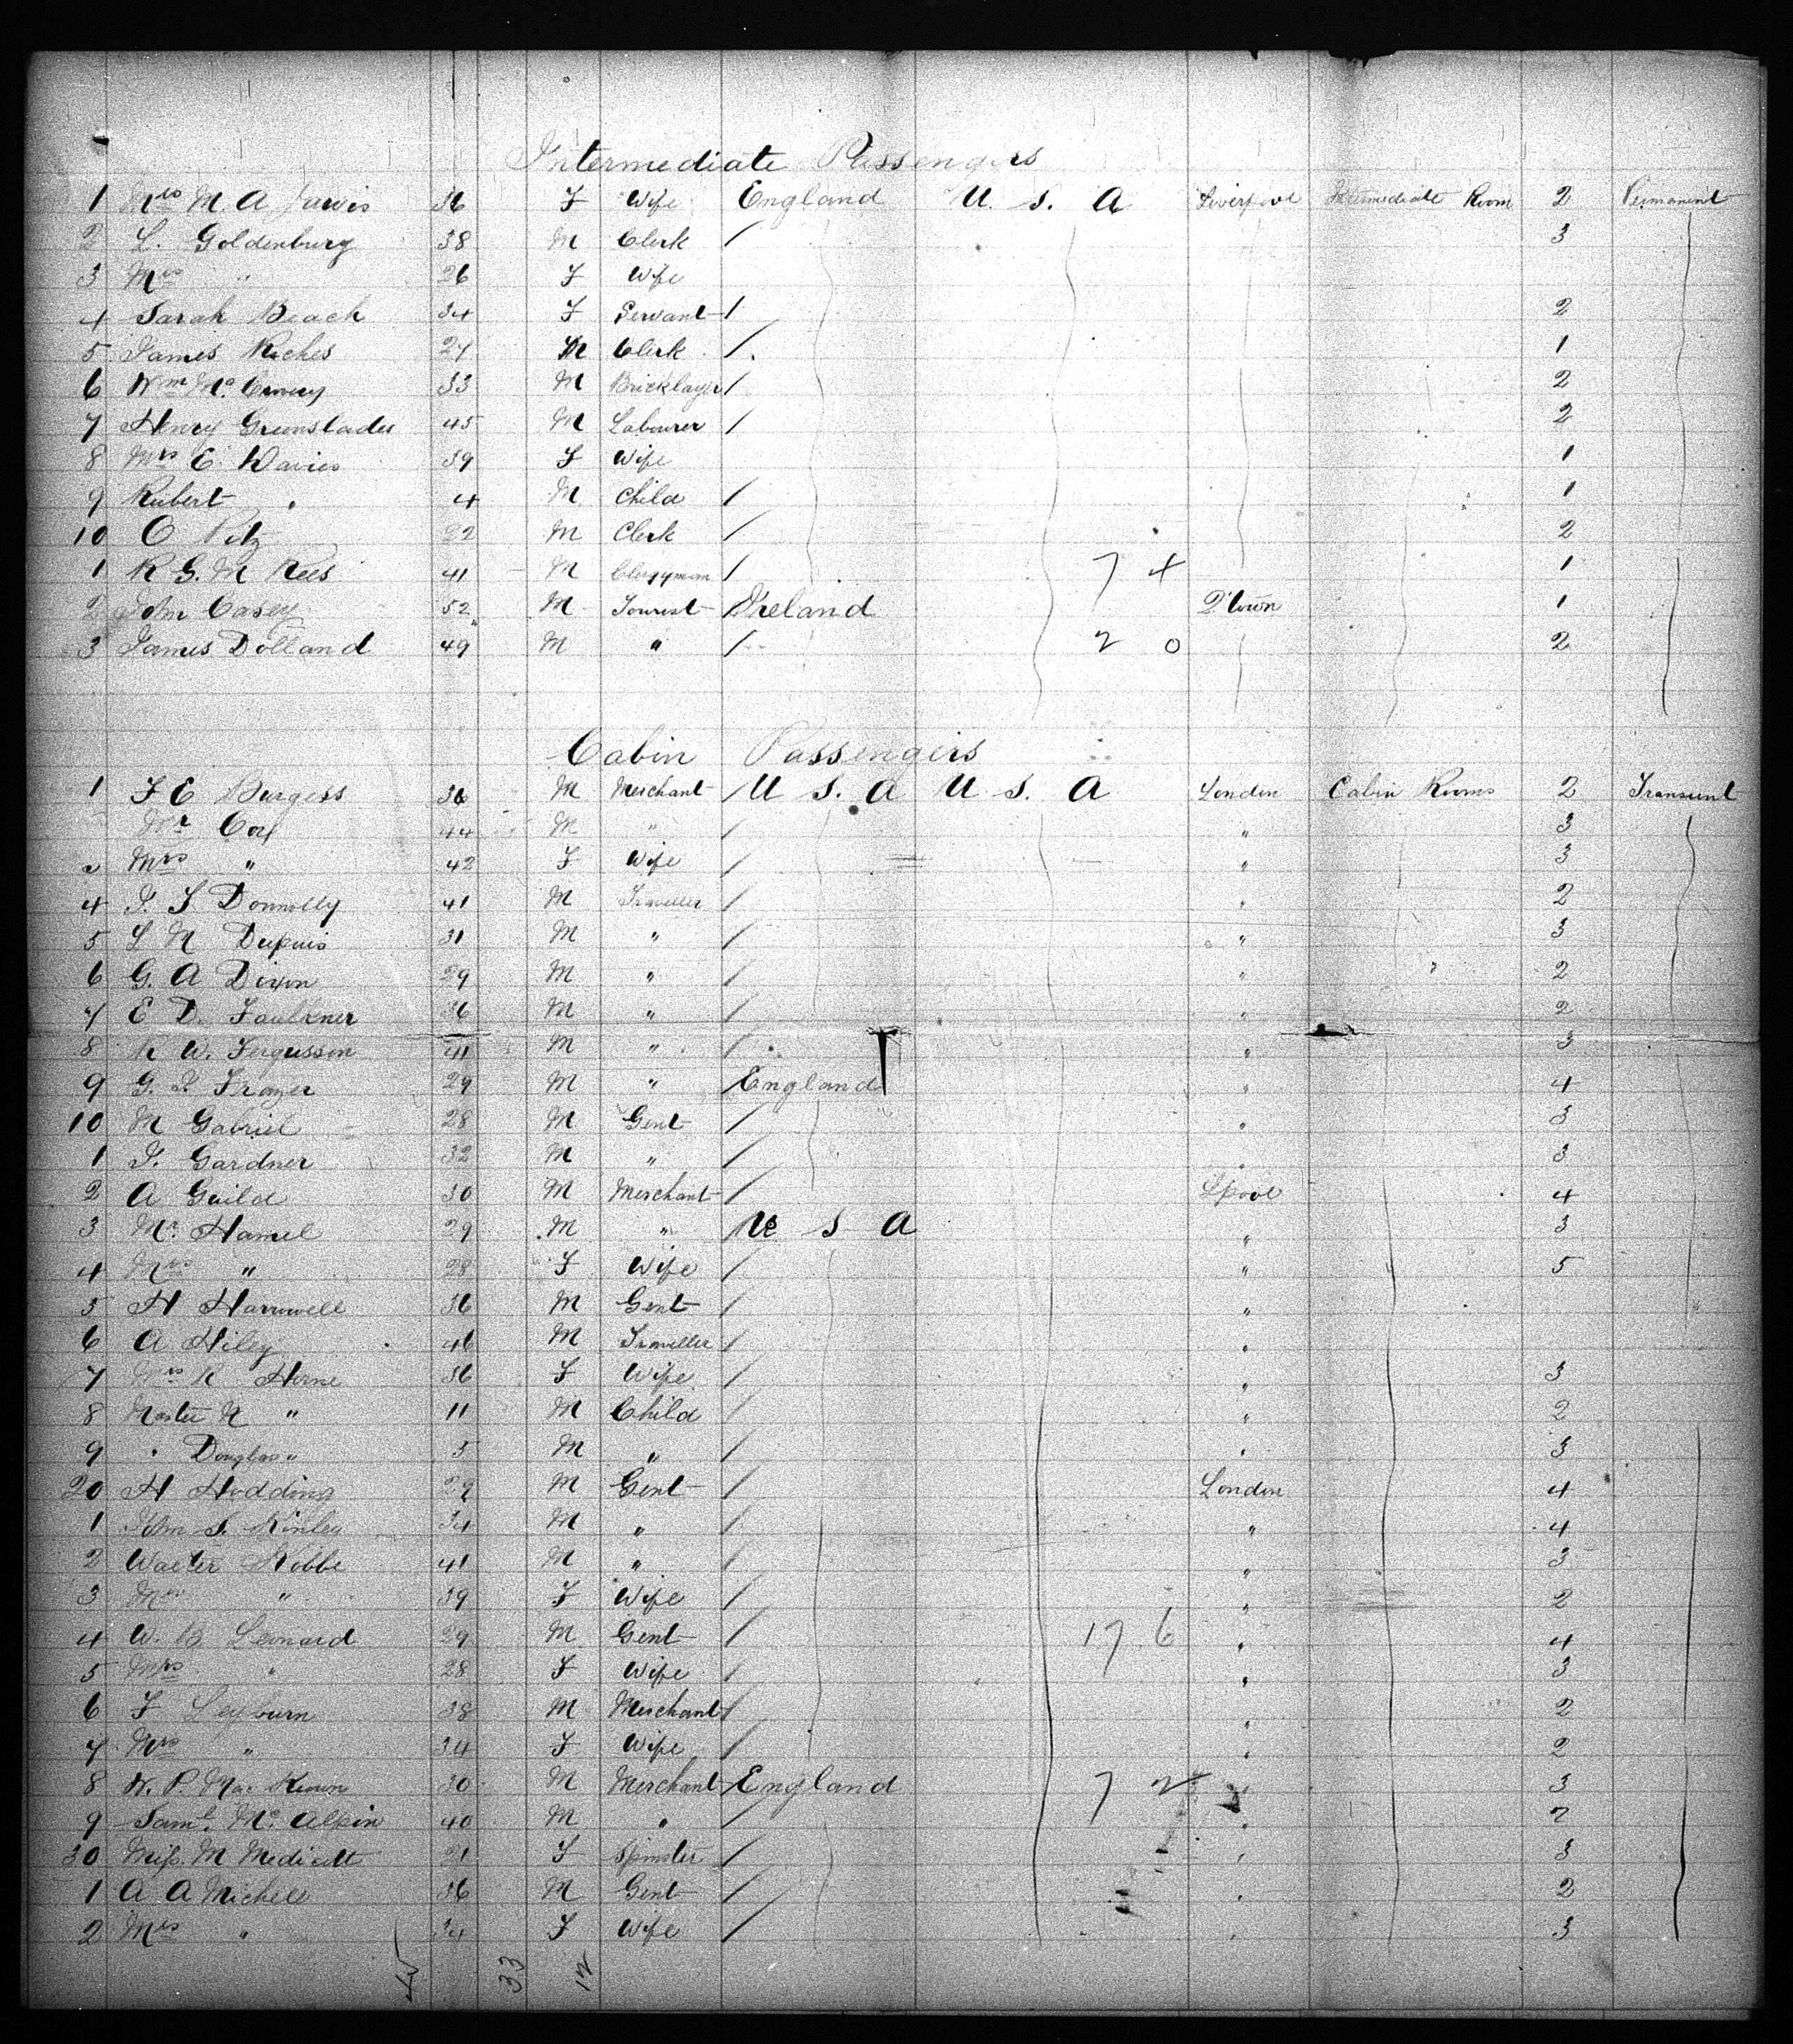 Intermediate Passengers
1 Mrs M. A 36 F Wife England U. S. A Liverpool Intermediate Room 2 Permanent
2 L. Goldenburg 38 M Clerk / 3
3 Mrs " 26 F Wife
4 Sarah Beach 34 F Servant / 2
5 James Riches 27 M Clerk / 1
6 Wm Mc 33 M Bricklayer / 2
7 Henry Greenslades 45 M Labourer / 2
8 Mrs E. Davies 39 F Wife 1
9 Rubert " 4 M Child / 1
10 O 22 M Clerk / 2
1 R G. M Rees 41 M Clergyman / 7 4 1
2 John Casey 52 M Tourist / Ireland Q'town 1
3 James Dolland 49 M " / 2 0 2
Cabin Passengers
1 F E Burgess 36 M Merchant / U S. A U S. A London Cabin Rooms 2 Transient
Mr Cox 44 M " / " 3
3 Mrs " 42 F Wife / " 3
4 T. F Donnolly 41 M Traveller / " 2
5 L N Dupuis 31 M " / " 3
6 G. A Dixon 29 M " / " " 2
7 E D. Faulkner 36 M " / " 2
8 W. Fergusson 41 M " / " 3
9 G. Frazer 29 M " / England " 4
10 M Gabriel 28 M Gent / " 3
1 Gardner 32 M " / " 3
2 A Guild 30 M Merchant / Lpool 4
3 Mr. Hamel 29 M " / U S A " 3
4 Mrs " 28 F Wife / " 5
5 H Harrowell 36 M Gent / "
6 A Hiley 46 M Traveller / "
7 Mrs Horne 36 F Wife / " 3
8 Master N " 11 M Child / " 2
9 " Douglas " 5 M " / " 3
20 H Hodding 29 M Gent / London 4
1 John S. Kinley 34 M " / " 4
2 Walter 41 M " / " 3
3 Mrs " 39 F Wife / " 2
4 W. B Leonard 29 M Gent / 17 6 " 4
5 Mrs " 28 F Wife / " 3
6 F Leyburn 38 M Merchant / " 2
7 Mrs " 34 F Wife / " 2
8 W. P. Mac Keown 30 M Merchant / England 7 2 " 3
9 Saml. Mc Alpin 40 M " / " 2
30 Miss. M Medicott 21 F Spinster / " 3
1 A A Michell 36 M Gent / " 2
2 Mrs " 34 F Wife / " 3
45 33 12